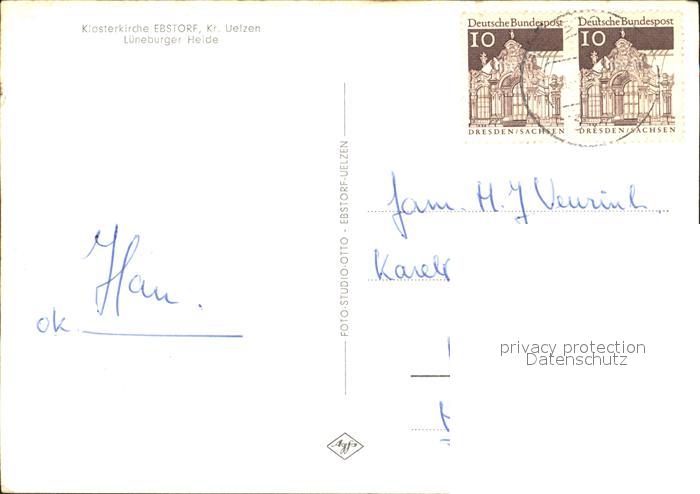 Klosterkirche EBSTORF, Kr. Uelzen
Lüneburger Heide
Deutsche Bundespost
10
DRESDEN/SACHSEN
Deutsche Bundespost
10
DRESDEN/SACHSEN
FOTO-STUDIO-OTTO - EBSTORF-UELZEN
Fam. H. J
Han.
ok.
privacy protection
Datenschutz
Agfa